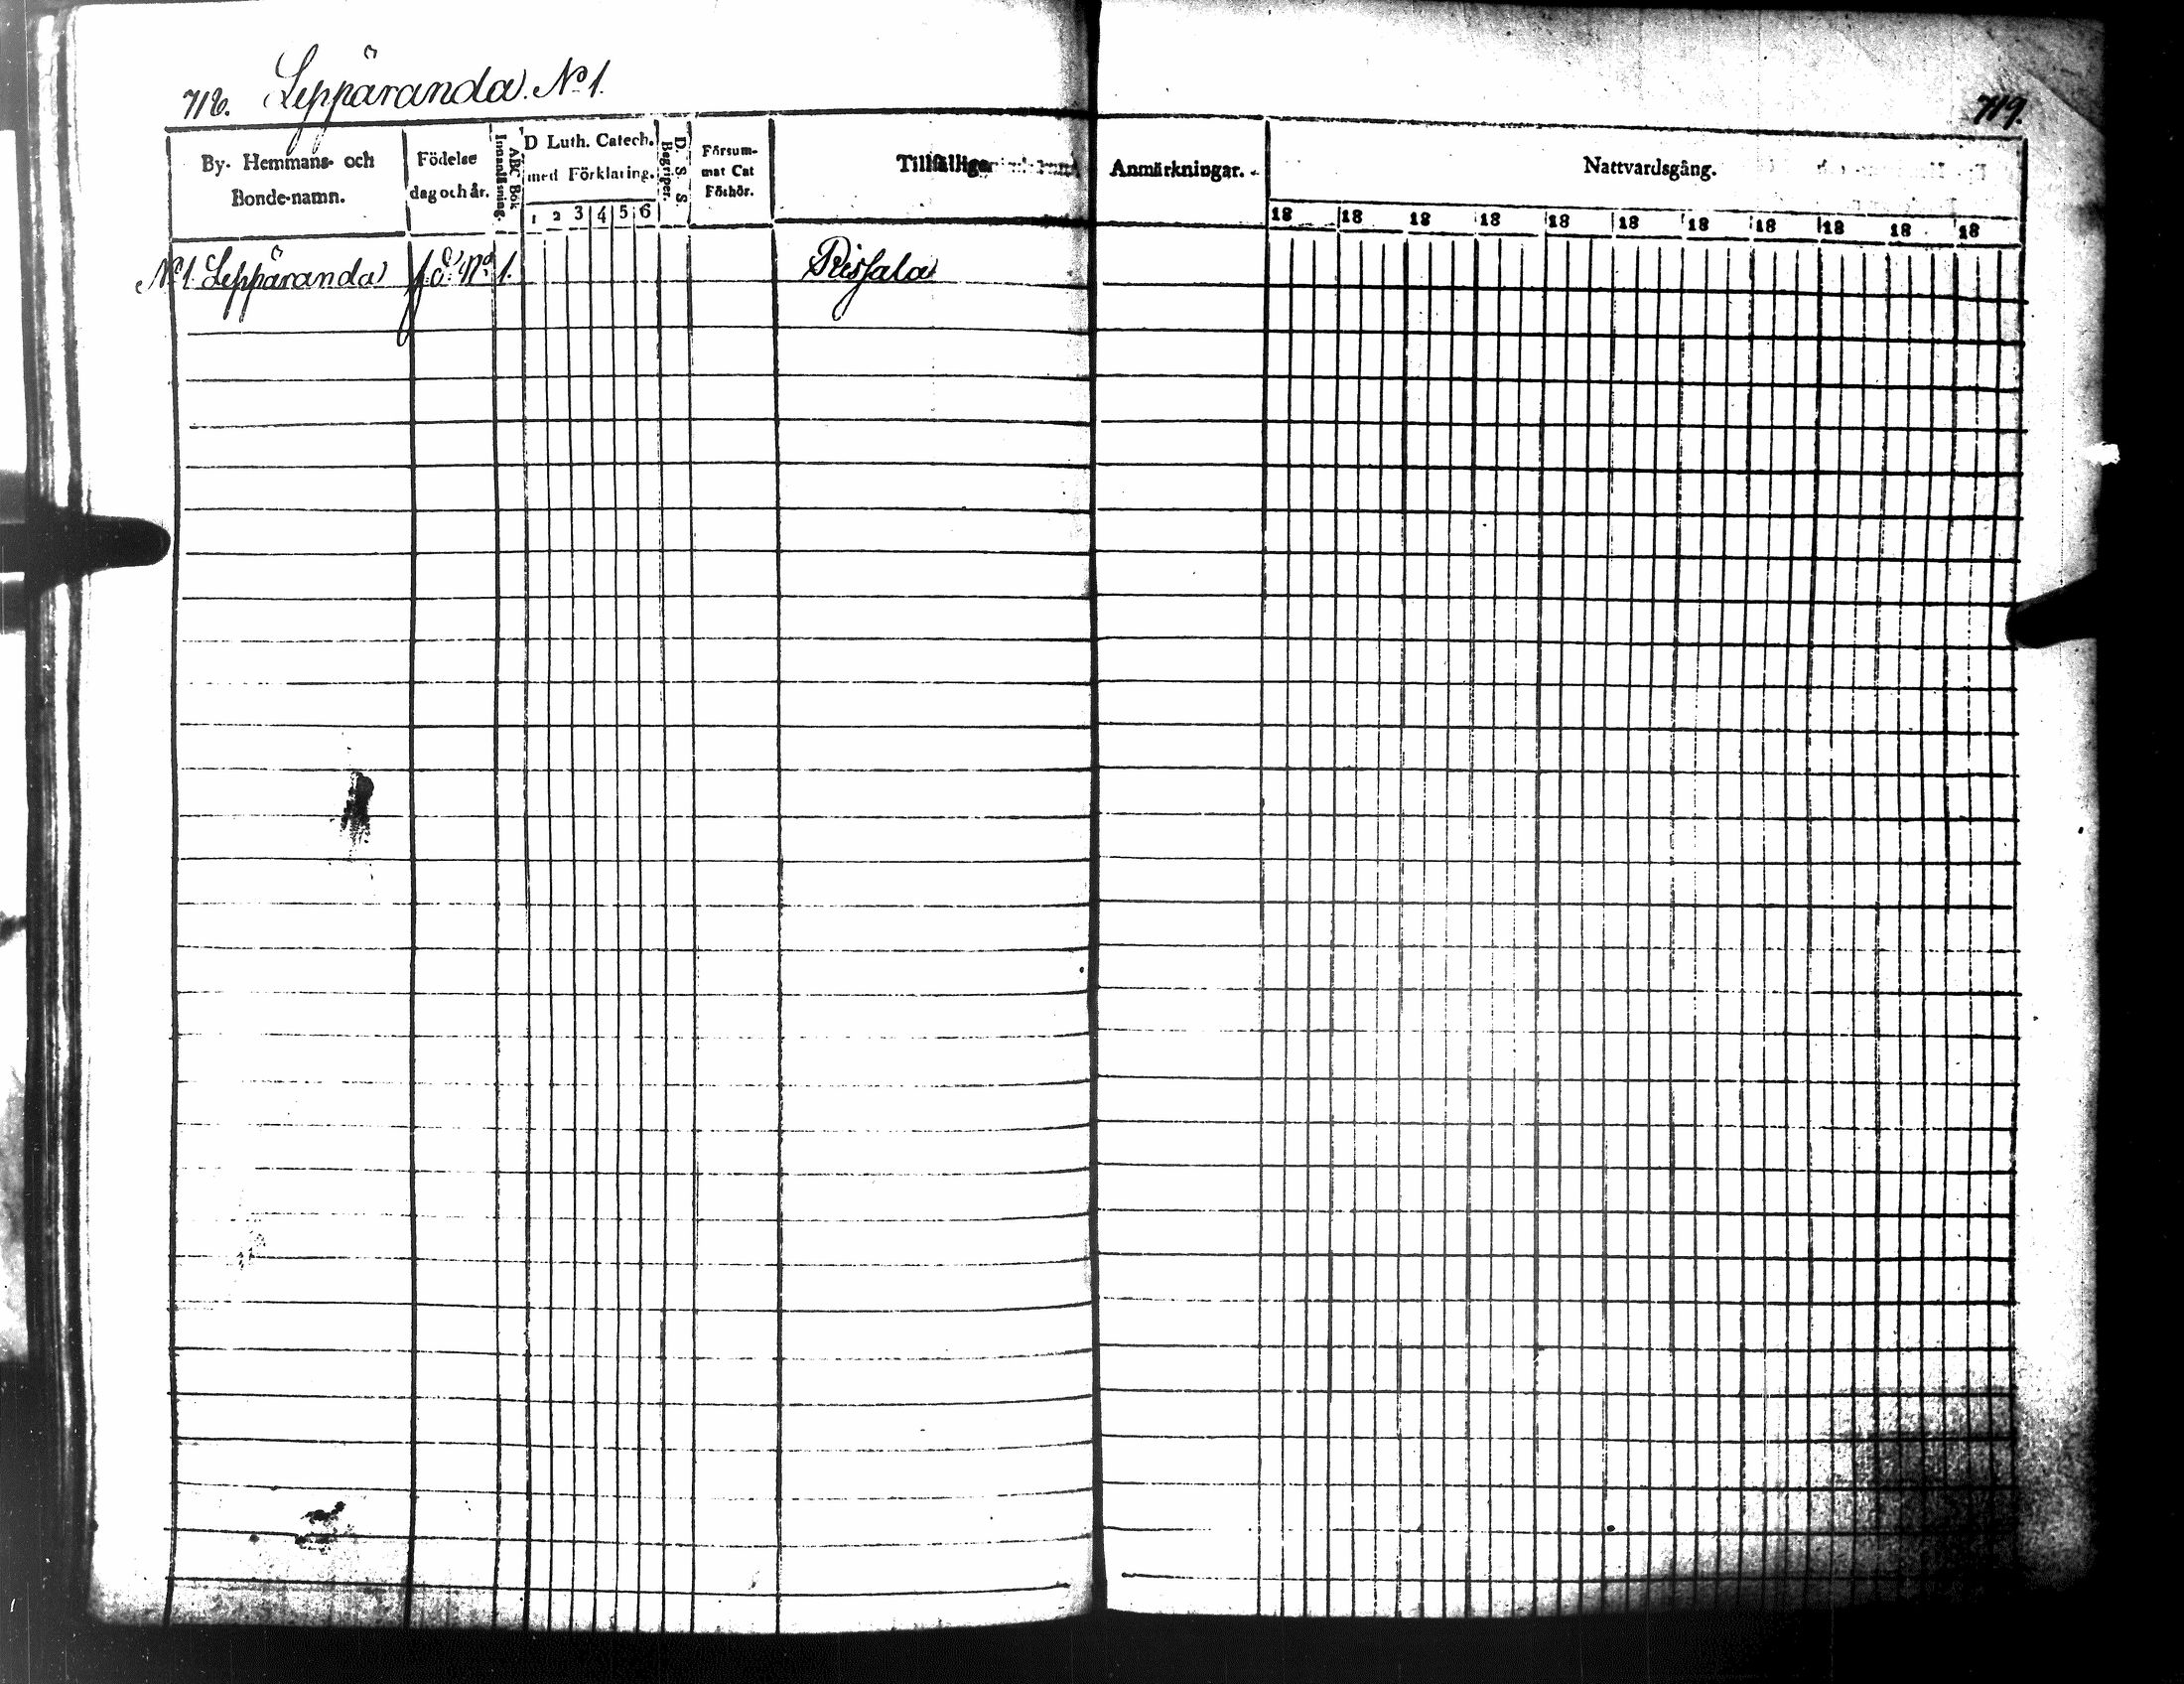 718. Leppäranda. No 1.
719.
By- Hemmans- och Bonde-namn.
Födelse dag och år.
ABC Bok Innanläsning.
D Luth. Catech. med Förklaring.
1 2 3 4 5 6
D. S. S. Begriper.
Försummat Cat Förhör.
Tillfällige
Anmärkningar.
Nattvardsgång.
18 18 18 18 18 18 18 18 18 18 18
No 1. Leppäranda No 1. Rissala